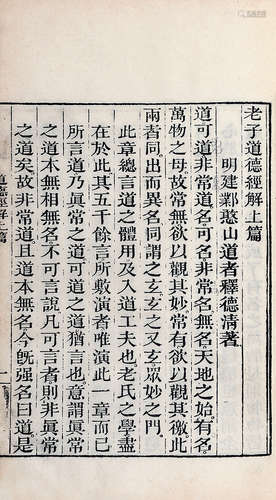 老子道德經解上篇
明建鄴憨山道者釋德清著
道可道非常道名可名非常名無名天地之始有名
萬物之母故常無欲以觀其妙常有欲以觀其徼此
兩者同出而異名同謂之玄玄之又玄眾妙之門
此章總言道之體用及入道工夫也老氏之學盡
在於此其五千餘言所敷演者唯演此一章而已
所言道乃眞常之道可道之道猶言也意謂眞常
之道本無相無名不可言說凡可言者則非眞常
之道矣故非常道且道本無名今旣强名曰道是
道德經解上篇
一